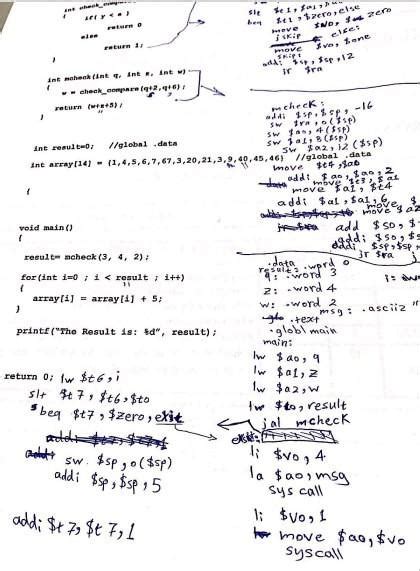 int check_compare
{
if( y < a )
return 0
else
return 1;
}
int mcheck(int q, int z, int w)
{
w = check_compare(q+2,q+6);
return (w+z+5);
}
int result=0;   //global .data
int array[14] = {1,4,5,6,7,67,3,20,21,3,9,40,45,46}  //global .data
{
void main()
{
result= mcheck(3, 4, 2);
for(int i=0 ; i < result ; i++)
{
array[i] = array[i] + 5;
}
printf("The Result is: %d", result);
return 0;
lw $t6, i
slt $t7, $t6, $t0
beq $t7, $zero, exit
sw $sp, 0($sp)
addi $sp, $sp, 5
addi $t7, $t7, 1
beq $t1, $zero, else
move $v0, $zero
j skip
else:
move $v0, $one
skip:
addi $sp, $sp, 12
jr $ra
mcheck:
addi $sp, $sp, -16
sw $ra, 0($sp)
sw $a0, 4($sp)
sw $a1, 8($sp)
sw $a2, 12($sp)
move $t4, $a0
addi $a0, $a0, 2
move $t3, $a1
move $a1, $t4
addi $a1, $a1, 6
move
move $a2
add $s0, $
addi $s0, $s
addi $sp, $sp,
jr $ra
.data
result: .word 0
q: .word 3
z: .word 4
w: .word 2
msg: .asciiz "
.text
.globl main
main:
lw $a0, q
lw $a1, z
lw $a2, w
lw $t0, result
jal mcheck
exit:
li $v0, 4
la $a0, msg
syscall
li $v0, 1
move $a0, $v0
syscall